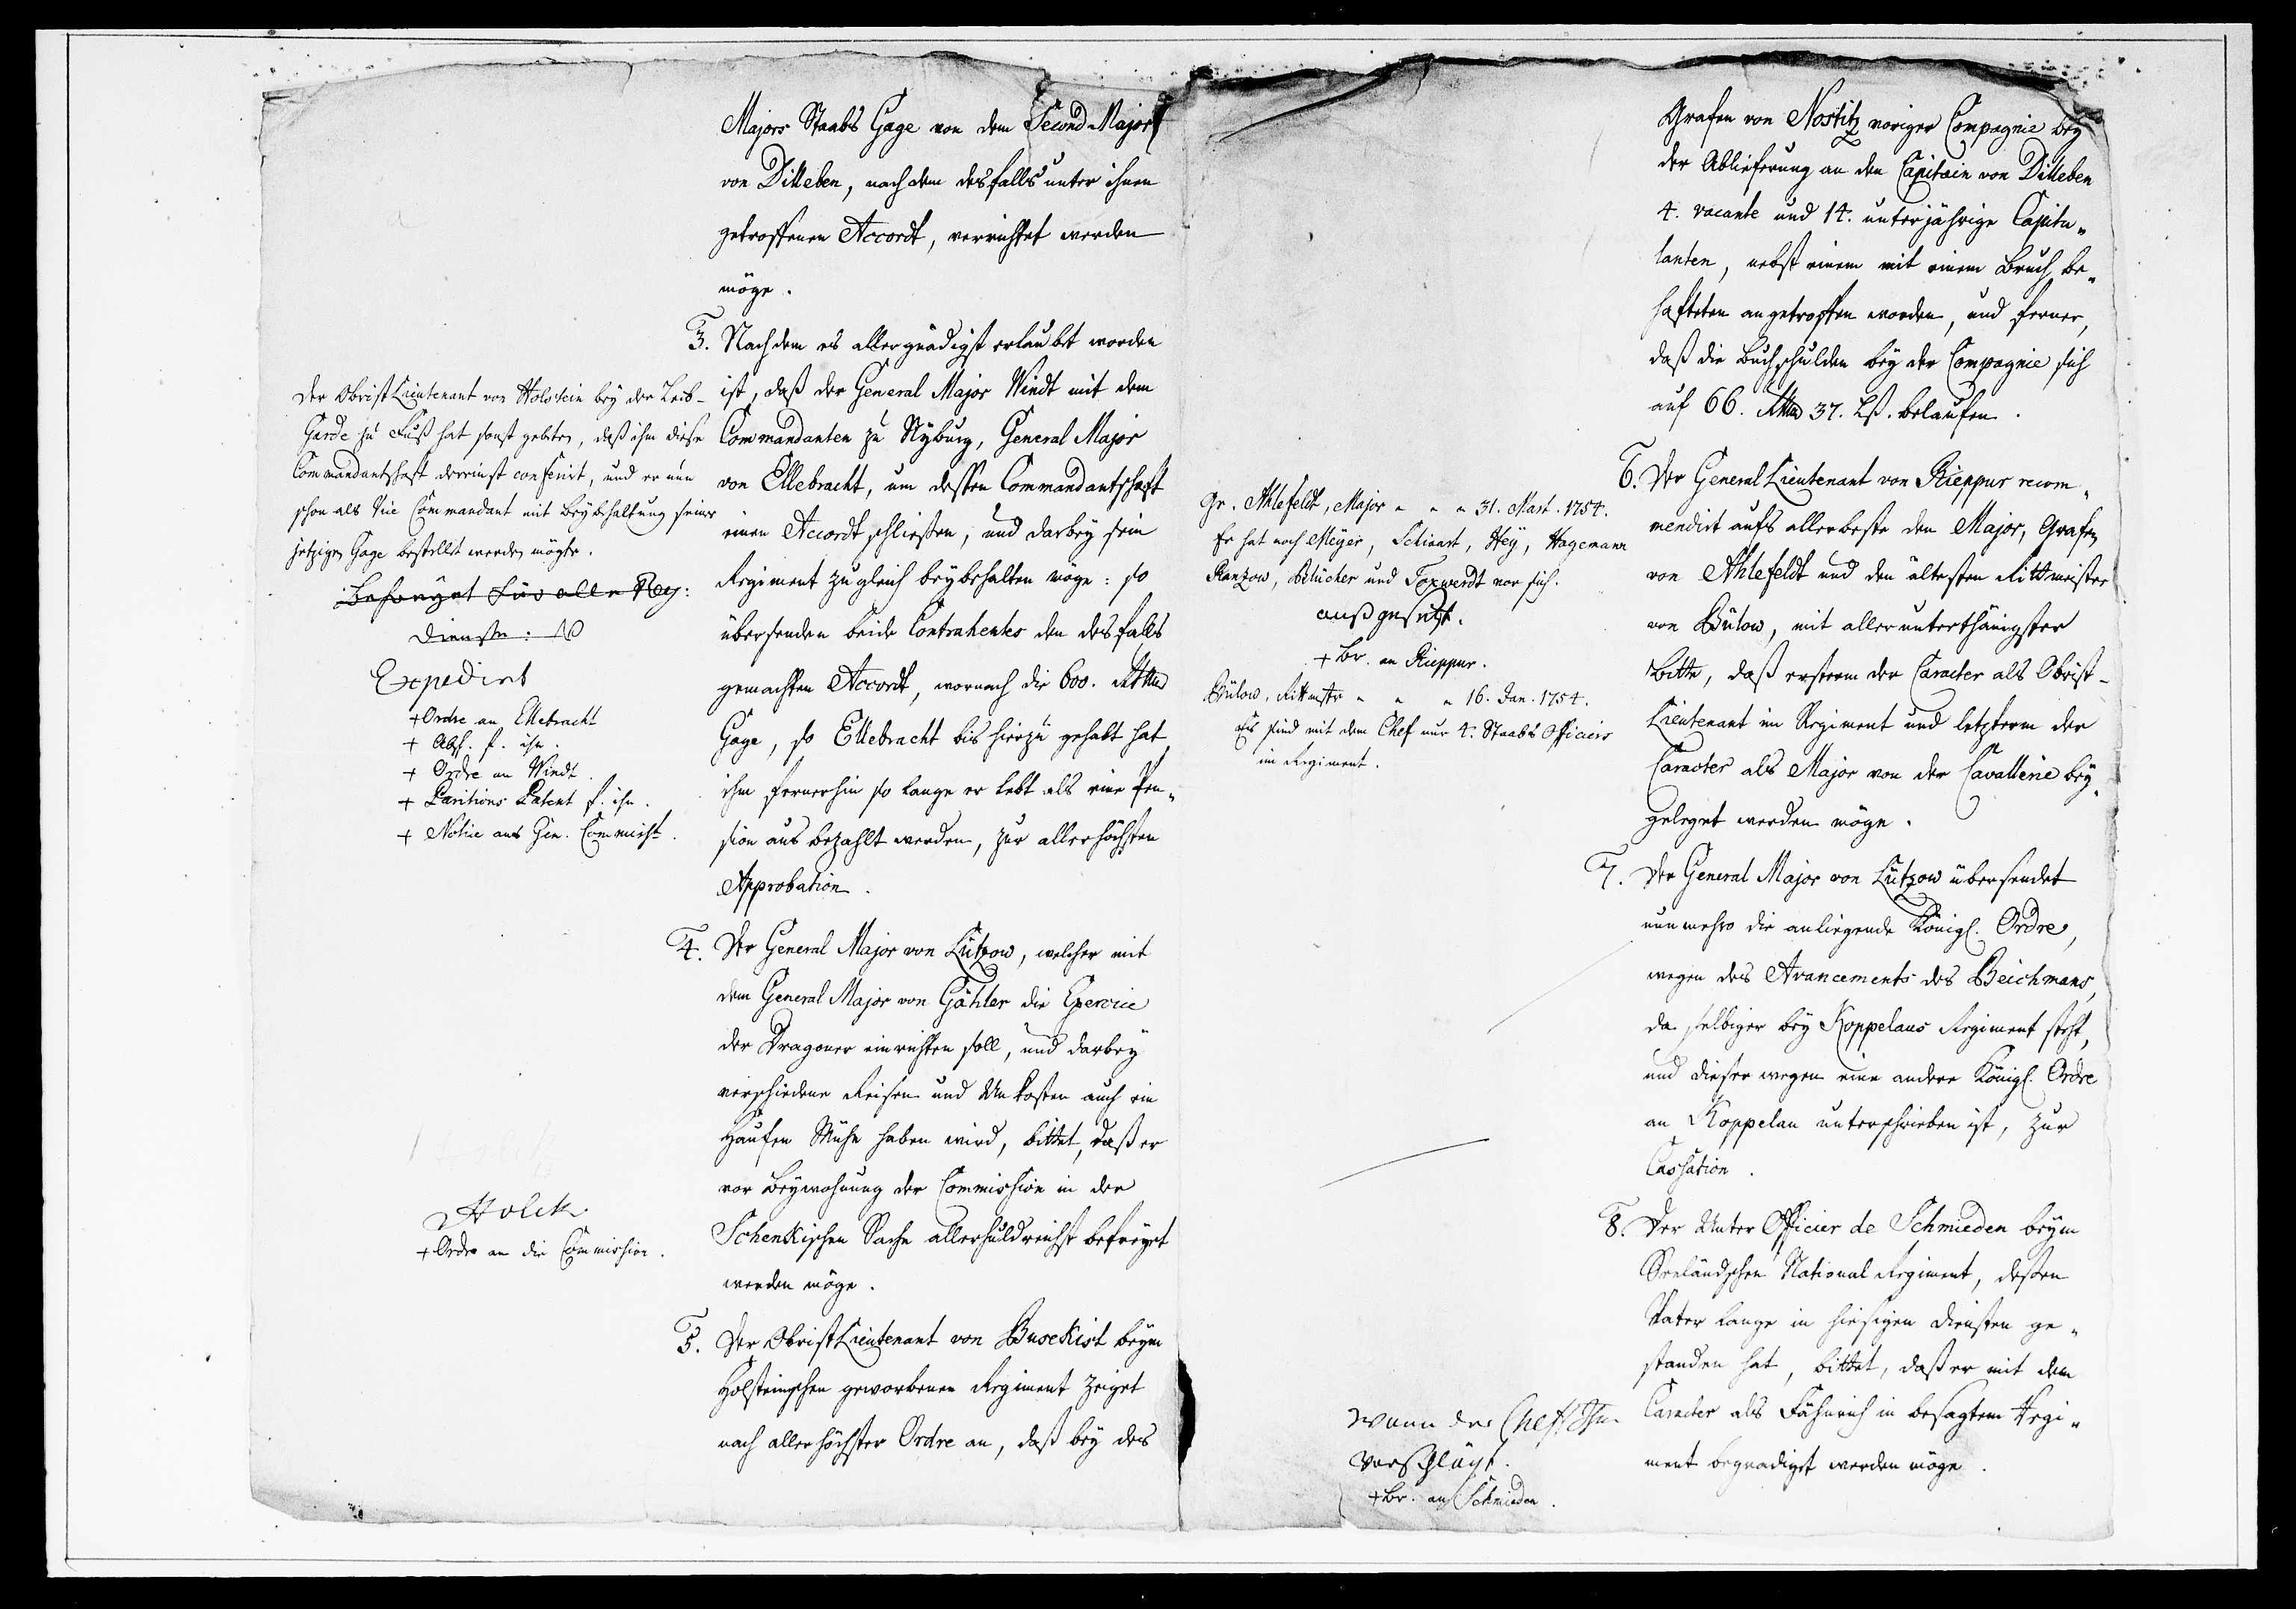 Majors Staabs Gage von dem Second-Major
von Ditleben, nach dem desfalls unter ihnen
getroffenen Accordt, verrichtet werden
möge.
3. Nachdem es allergnädigst erlaubt worden
ist, daß der General Major Windt mit dem
Commandanten zu Nyburg, General Major
von Ellebracht, um dessen Commandantschaft
einen Accordt schließen, und darbey sein
Regiment zugleich beybehalten möge: so
übersenden beide Contrahentes den desfalls
gemachten Accordt, wornach die 600. Rthlr
Gage, so Ellebracht bis hierzu gehabt hat,
ihm fernerhin so lange er lebt als eine Pen„
sion aus bezahlt werden, zur allerhöchsten
Approbation.
Der Obrist Lieutenant von Holstein bey der Leib-
Garde zu Fuß hat sonst gebeten, daß ihm diese
Commandantschaft dereinst conferirt, und er nun
schon als Vice Commandant mit Beybehaltung seiner
jetzigen Gage bestellet werden mögte.
Dienste:
Expedirt
+ Ordre an Ellebracht
+ Absch. f. ihn.
+ Ordre an Windt.
+ Paritions Patent f. ihn.
+ Notice ans Gen. Commiss.
4. Der General Major von Lützow, welcher mit
dem General Major von Gähler die Exercice
der Dragoner einrichten soll, und darbey
verschiedene Reisen und Unkosten auch ein
Haufen Mühe haben wird, bittet, daß er
von Beywohnung der Commission in der
Schenkischen Sache allerhuldreichst befreyet
werden möge.
Holck.
+ Ordre an die Commission.
5. Der Obrist Lieutenant von Busekist beym
Holsteinschen geworbenen Regiment zeiget
nach allerhöchster Ordre an, daß bey des
Grafen von Nostitz voriger Compagnie bey
der Ablieferung an den Capitain von Ditleben
4. vacante und 14. unterjährige Capitu„
lanten, nebst einem mit einem Bruch be„
hafteten angetroffen worden, und ferner,
daß die Buchschulden bey der Compagnie sich
auf 66. Rthlr 37. Lß. belaufen.
6. Der General Lieutenant von Rieppur recom„
mendirt aufs allerbeste den Major, Grafen
von Ahlefeldt und den ältesten Rittmeister
von Bülow, mit allerunterthänigster
Bitte, daß ersterm der Caracter als Obrist-
Lieutenant im Regiment und letzterm der
Caracter als Major von der Cavallerie bey„
geleget werden möge.
Gr. Ahlefeldt, Major „ „ „ 31. Mart. 1754.
Er hat noch Meyer, Hey, Hagemann
Ranzow, Blücher und vor sich.
außgesetzt.
+ Br. an Rieppur.
Bülow, Rittmstr „ „ „ 16. Jan. 1754.
Es sind mit dem Chef nur 4. Staabs Officiers
im Regiment.
7. Der General Major von Lützow übersendet
nunmehro die anliegende Königl. Ordre,
wegen des Avancements des Beichmans,
da selbiger bey Koppelaus Regiment steht,
und dieserwegen eine andere Königl. Ordre
an Koppelau unterschrieben ist, zur
Cassation.
8. Der Unter Officier de Schmieden beym
Seeländschen National Regiment, dessen
Vater lange in hiesigen Diensten ge„
standen hat, bittet, daß er mit dem
Caracter als Fähnrich in besagtem Regi„
ment begnadiget werden möge.
Wann der Chef Ihn
Vorschlägt.
+ Br. an Schmieden.